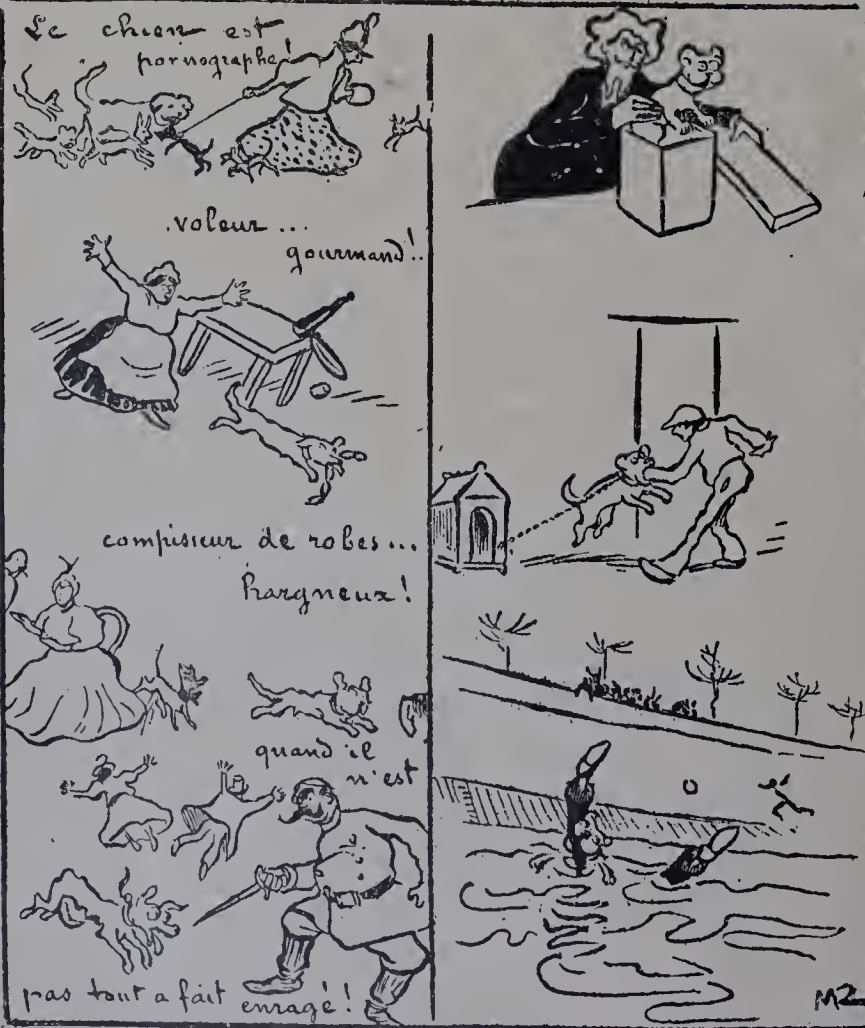 Le chien est
pornographe!
voleur...
gourmand!..
compisseur de robes...
hargneux!
quand il
n'est
pas tout a fait enragé!
MZ